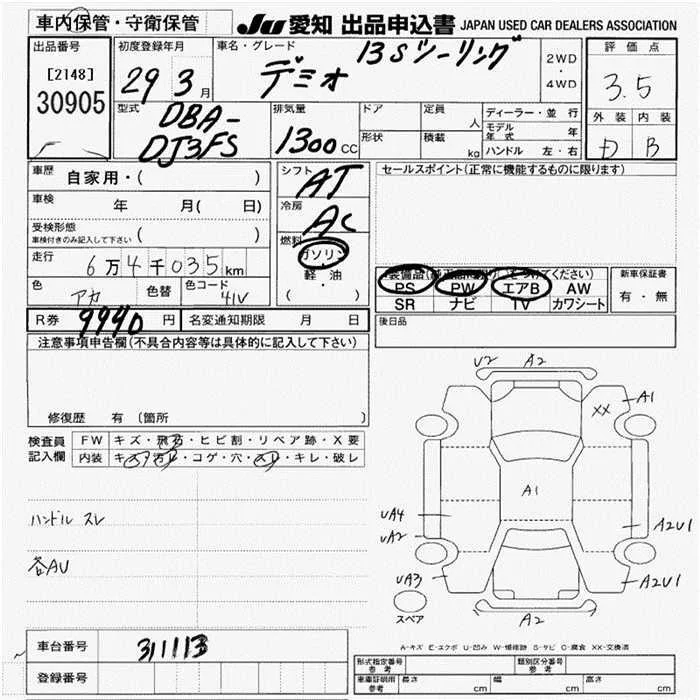 車内保管・守衛保管
JU 愛知 出品申込書 JAPAN USED CAR DEALERS ASSOCIATION
出品番号
[2148]
30905
初度登録年月
29 3月
車名・グレード
デミオ 13Sツーリング
2WD
・
4WD
評価点
3.5
外装 内装
D B
型式
DBA-
DJ3FS
排気量
1300 CC
ドア
定員
人
形状
積載
kg
ディーラー・並行
モデル年
ハンドル 左・右
車歴
自家用・( )
車検
年 月( 日)
受検形態
車検付きのみ記入して下さい ( )
走行
6万4千035km
色
アカ
色替
色コード
41V
シフト
AT
冷房
AC
燃料
ガソリン
・
軽・油
( )
セールスポイント(正常に機能するものに限ります)
PS PW エアB AW
SR ナビ TV カワシート
新車保証書
有・無
R券 9990円 名変通知期限 月 日
後日品
注意事項申告欄(不具合内容等は具体的に記入して下さい)
修復歴 有 〔箇所 〕
検査員
記入欄
FW キズ・飛石・ヒビ割・リペア跡・X要
内装 キズ・汚レ・コゲ・穴・スレ・キレ・破レ
ハンドル スレ
各AU
U2 A2
A1
XX
A1
UA4
UA2
A2U1
UA3
A2U1
スペア
A2
A-キズ E-エクボ U-凹み W-補修跡 S-サビ C-腐食 XX-交換済
車台番号 311113
登録番号
形式指定番号
参考
類別区分番号
参考
車庫証明用
参考
長さ cm 幅 cm 高さ cm